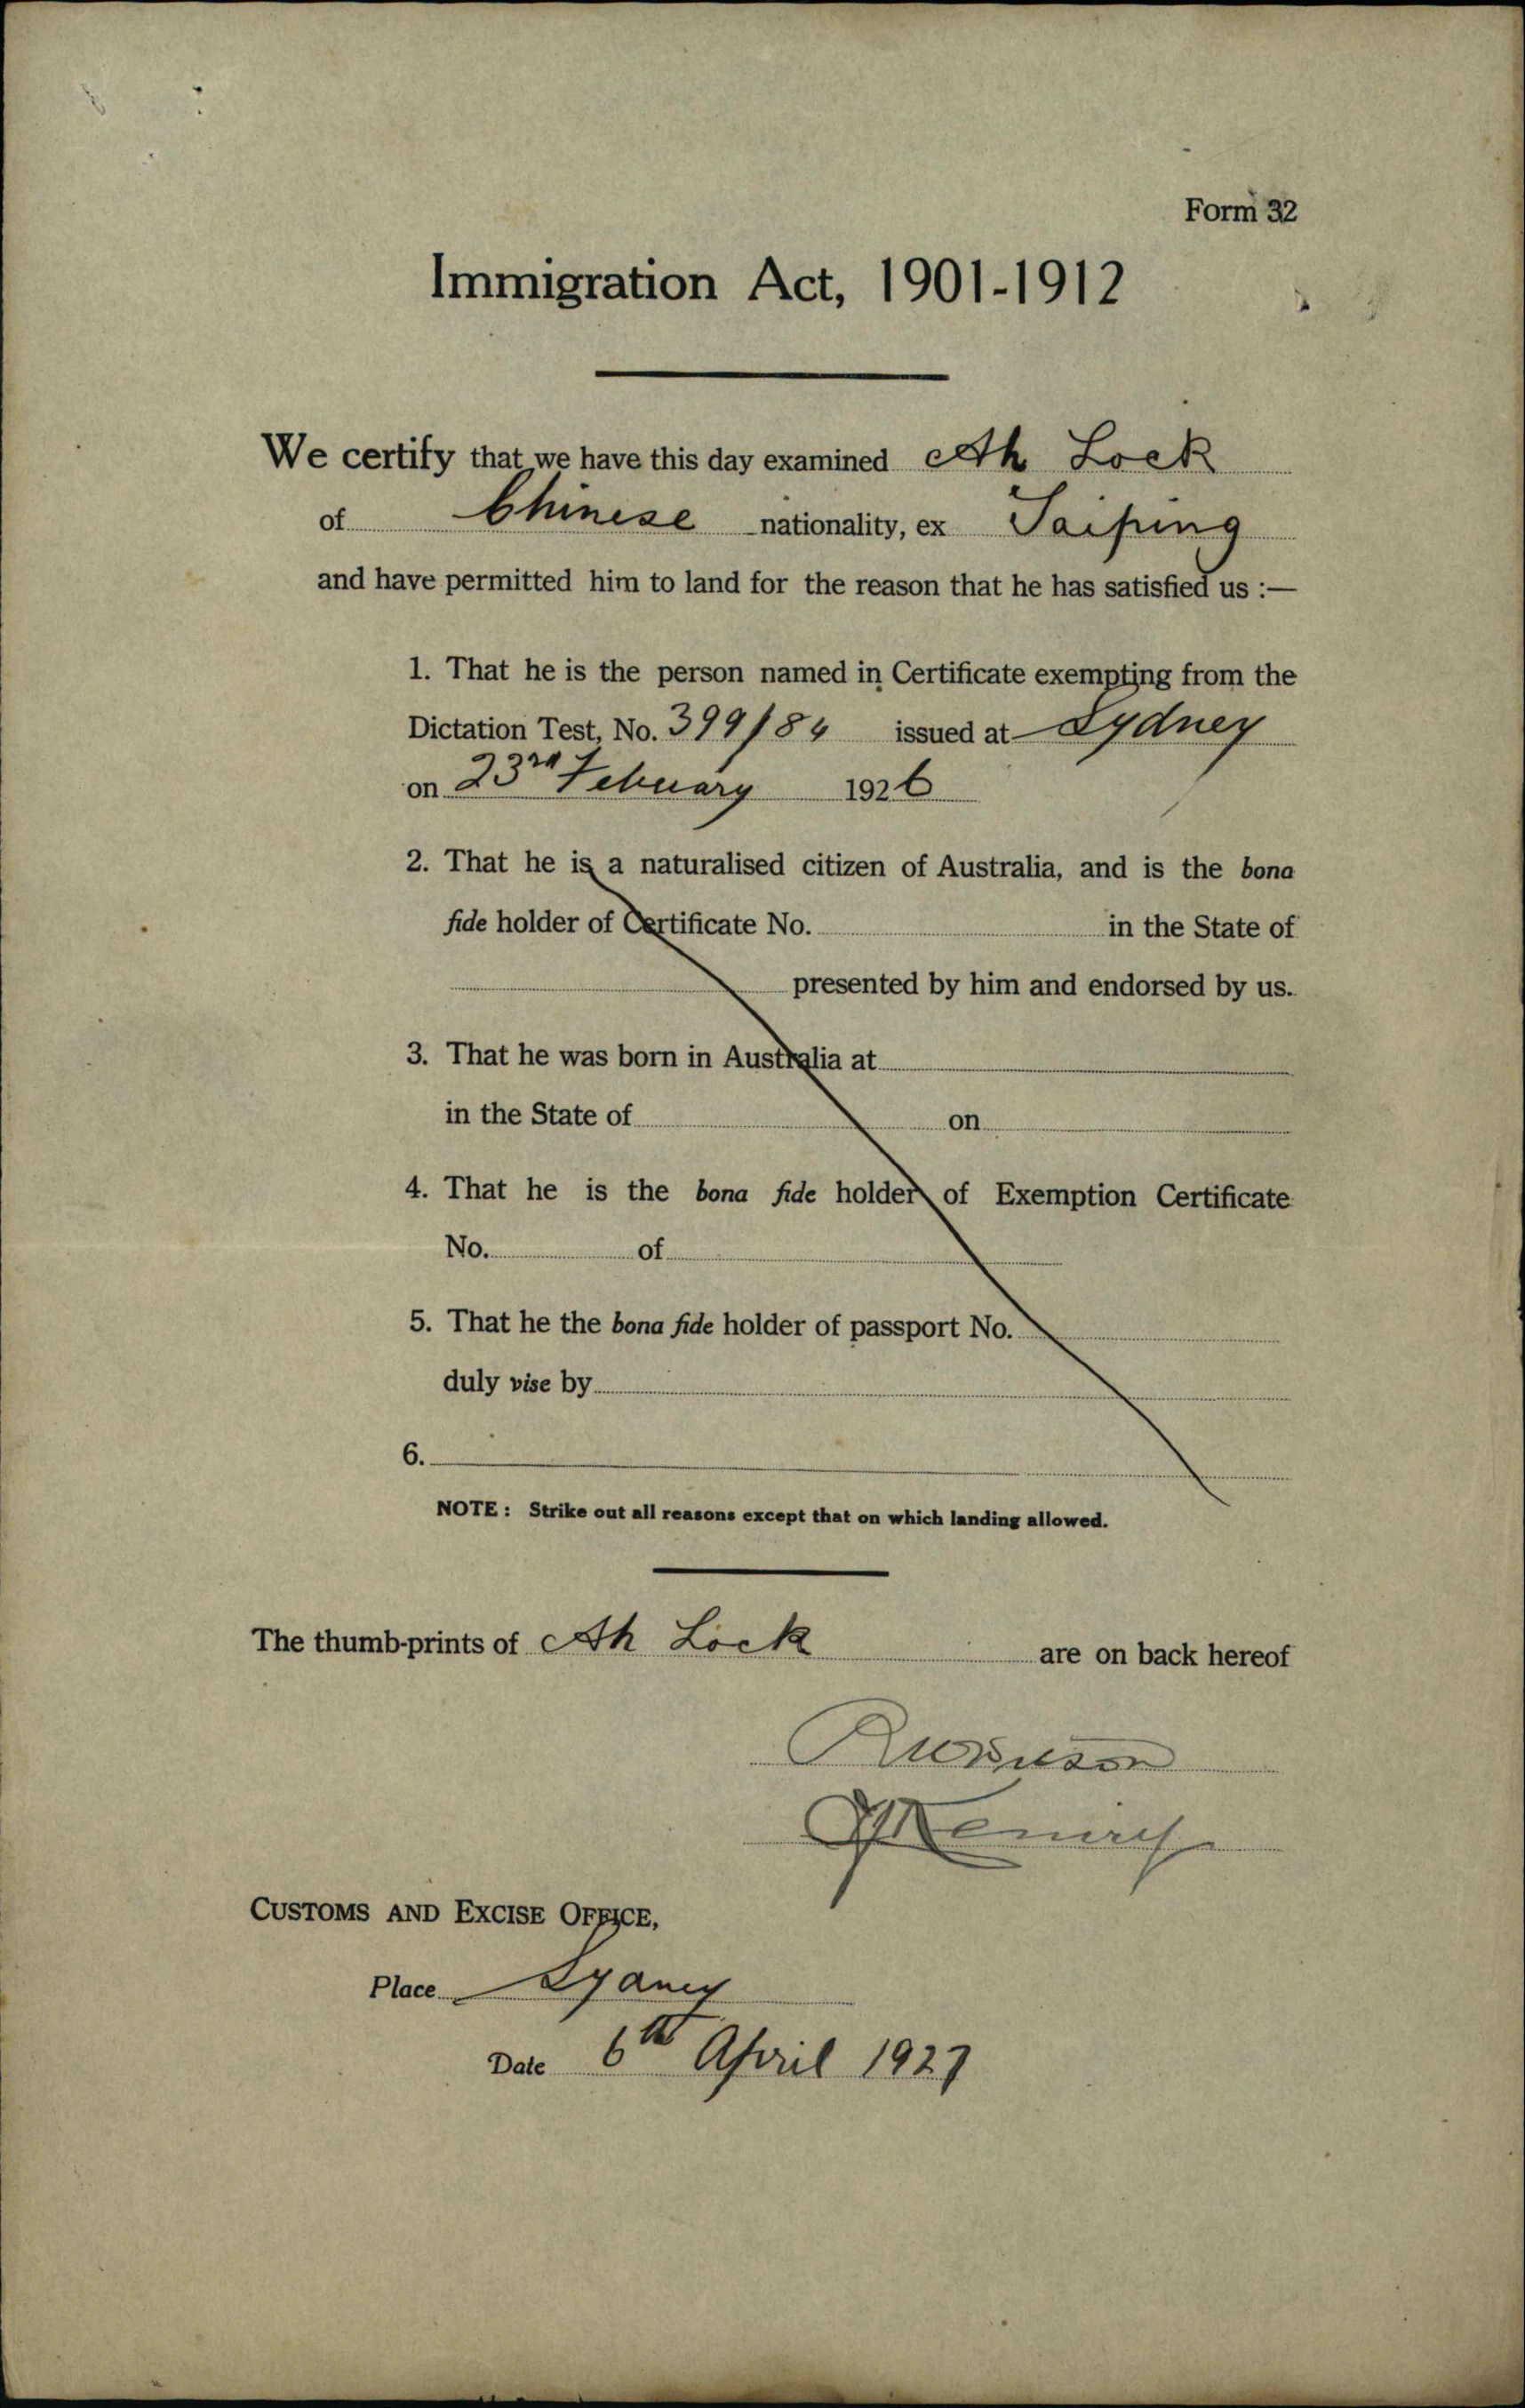 Form 32
Immigration Act, 1901-1912
We certify that we have this day examined Ah Lock
of Chinese nationality, ex Taiping
and have permitted him to land for the reason that he has satisfied us :—
1. That he is the person named in Certificate exempting from the
Dictation Test, No. 399/84 issued at Sydney
on 23rd February 1926
2. That he is a naturalised citizen of Australia, and is the bona
fide holder of Certificate No. in the State of
presented by him and endorsed by us.
3. That he was born in Australia at
in the State of on
4. That he is the bona fide holder of Exemption Certificate
No. of
5. That he the bona fide holder of passport No.
duly vise by
6.
NOTE : Strike out all reasons except that on which landing allowed.
The thumb-prints of Ah Lock are on back hereof
CUSTOMS AND EXCISE OFFICE,
Place Sydney
Date 6th April 1927